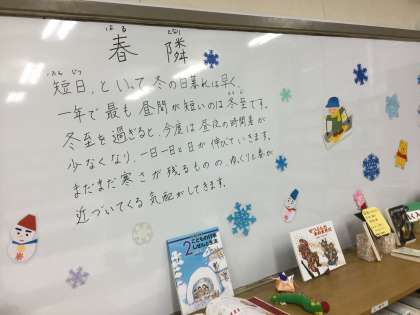 はる となり
春 隣
たん じつ
短日、といって冬の日暮れは早く、
一年で最も昼間が短いのは冬至です。
冬至を過ぎると、今度は昼夜の時間差が
少なくなり、一日一日と日が伸びていきます。
まだまだ寒さが残るものの、ゆっくりと春が
近づいてくる気配がしてきます。
2